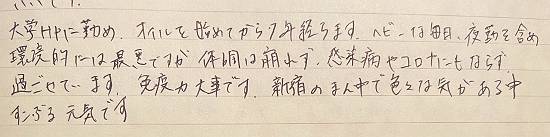 大学HPに勤め、オイルを始めてから7年経ちます。ヘビーな毎日、夜勤を含め
環境的には最悪ですが体調は崩れず、感染病やコロナにもならず
過ごせています。免疫力大事です。新宿のまん中で色々な気がある中
すこぶる元気です